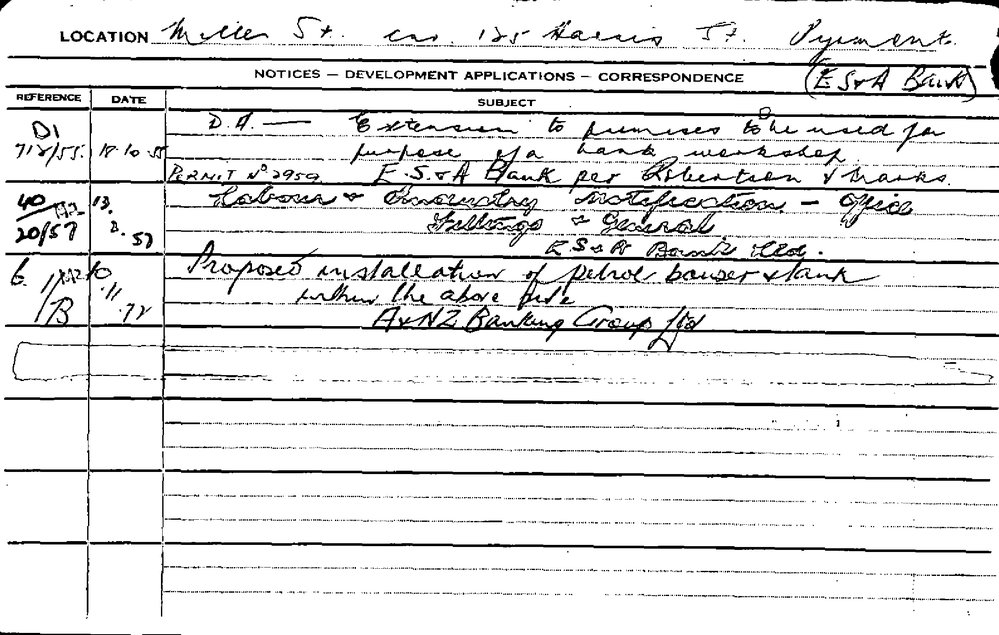 LOCATION Miller St. cnr. 125 Harris St. Pyrmont.
NOTICES — DEVELOPMENT APPLICATIONS — CORRESPONDENCE (E S & A Bank)
REFERENCE DATE SUBJECT
D1 D.A. — Extension to premises to be used for
712/55. 18.10.55 purpose of a bank workshop
PERMIT No. 2959 E.S. & A Bank per Robertson & Marks.
40 13. Labour & Industry Notification — Office
20/57 2. 57 Fittings & General.
E S & A Bank Ltd.
6. 10 Proposed installation of petrol bowser & tank
11 within the above site
/B .72 A & NZ Banking Group Ltd